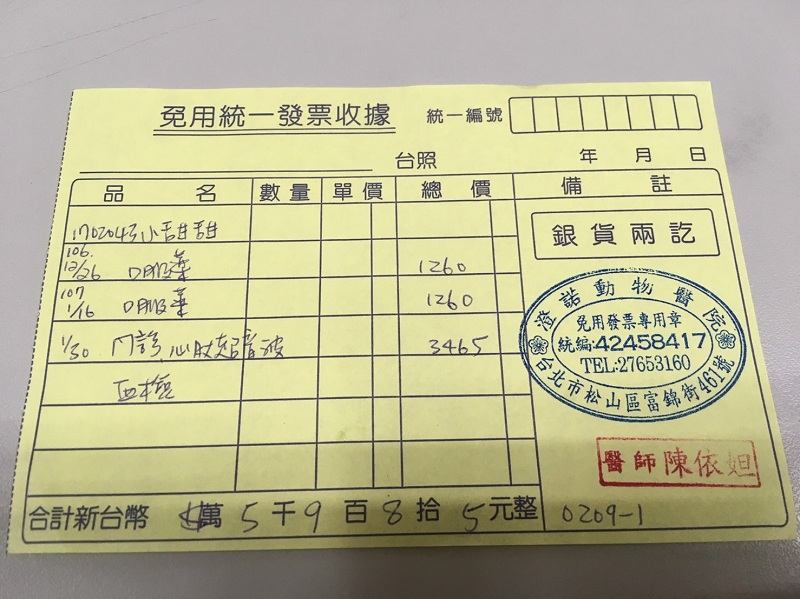 免用統一發票收據 統一編號
台照 年 月 日
品 名 數量 單價 總 價 備 註
170204引小甜甜
銀貨兩訖
106.
12/26 口服藥 1260
107
1/16 口服藥 1260
1/30 門診 心肚超音波 3465
血檢
澄諾動物醫院
免用發票專用章
統編:42458417
TEL:27653160
台北市松山區富錦街461號
醫師陳依妲
合計新台幣 萬 5 千 9 百 8 拾 5 元整
0209-1